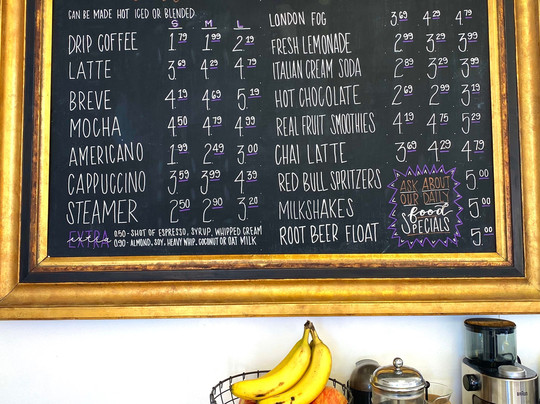 CAN BE MADE HOT ICED OR BLENDED
S M L
DRIP COFFEE 1.79 1.99 2.19
LATTE 3.69 4.29 4.79
BREVE 4.19 4.69 5.19
MOCHA 4.50 4.79 4.99
AMERICANO 1.99 2.49 3.00
CAPPUCCINO 3.59 3.99 4.39
STEAMER 2.50 2.90 3.20
EXTRA extra 0.50 - SHOT OF ESPRESSO, SYRUP, WHIPPED CREAM
0.90 - ALMOND, SOY, HEAVY WHIP, COCONUT OR OAT MILK
LONDON FOG 3.69 4.29 4.79
FRESH LEMONADE 2.99 3.29 3.99
ITALIAN CREAM SODA 2.89 3.29 3.99
HOT CHOCOLATE 2.69 2.99 3.29
REAL FRUIT SMOOTHIES 4.19 4.75 5.29
CHAI LATTE 3.69 4.29 4.79
RED BULL SPRITZERS 5.00
MILKSHAKES 5.00
ROOT BEER FLOAT 5.00
ASK ABOUT
OUR DAILY
food
SPECIALS
BRAUN